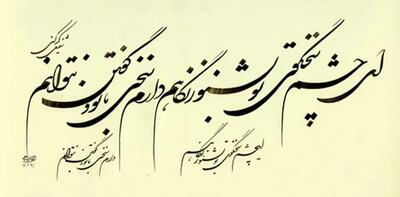 ای چشم سخنگوی تو بشنو ز نگاهم دارم سخنی با تو و گفتن نتوانم
شفیعی کدکنی
ای چشم سخنگوی تو بشنو ز نگاهم
دارم سخنی با تو و گفتن نتوانم